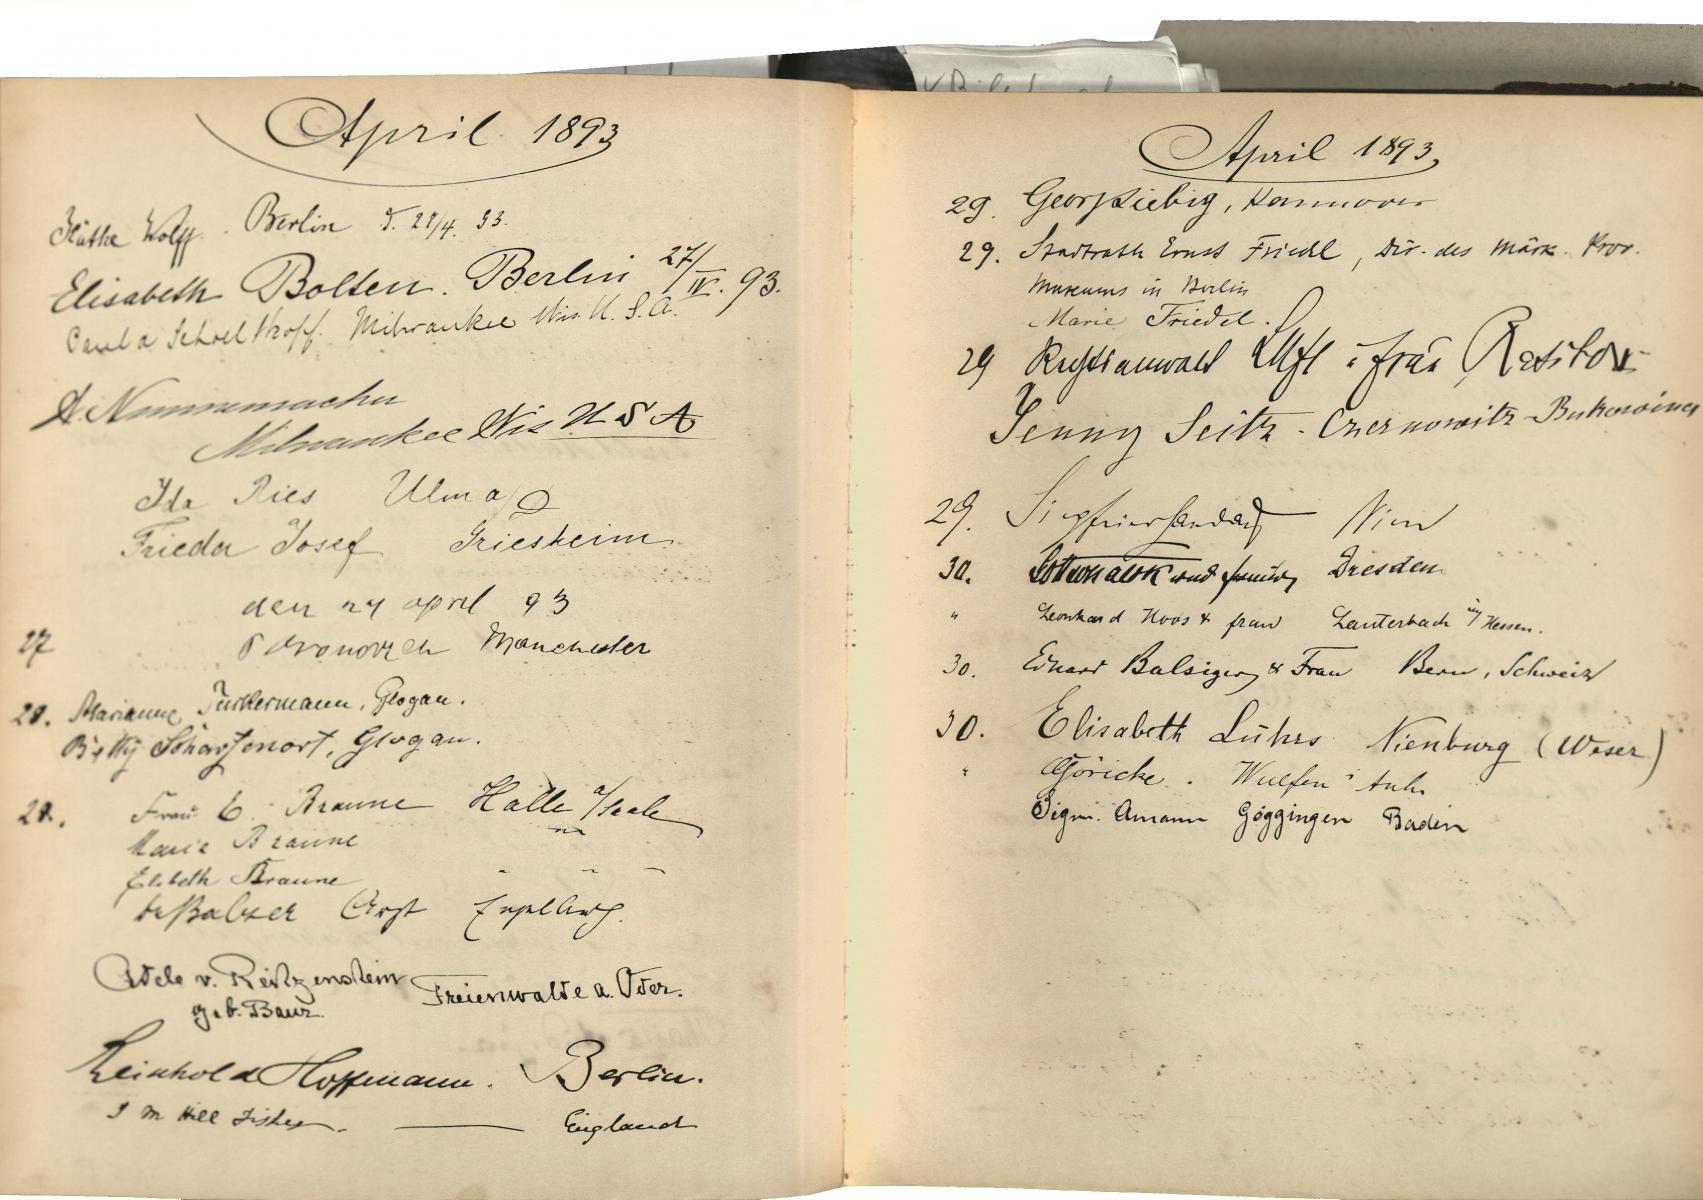 April 1893
Käthe Wolff. Berlin d. 27/4. 93.
Elisabeth Bolten. Berlin 27/IV. 93.
Paula Schoellkopf. Milwaukee Wis. U. S. A.
A. Nunnemacher
Milwaukee Wis U S A
Ida Ries Ulm a/D
Frieda Josef Griesheim.
den 27 april 93
27 Manchester
28. Marianne Glogau.
Betty Scharfenort, Glogau.
28. Frau E. Braune Halle a/Saale
Marie Braune "
Elsbeth Braune " " "
Dr Balzer Arzt
Adele v. Reitzenstein Freienwalde a. Oder.
geb. Baur
Reinhold Hoffmann. Berlin.
J M Hill Fisher. — England
April 1893,
29. Georg Liebig, Hannover
29. Stadtrath Ernst Friedel, Dir. des Märk. Prov.
Museums in Berlin
Marie Friedel.
29 Rechtsanwald Frau Ratibor
Jenny Seitz - Czernowitz - Bukowina
29. Wien
30. und Dresden
" Leonhard Koos & frau Lauterbach in Hessen.
30. Eduard Balsiger & Frau Bern, Schweiz
30. Elisabeth Lührs Nienburg (Weser)
" Göricke. Wulfen i Anh.
Sigm. Amann Göggingen Baden